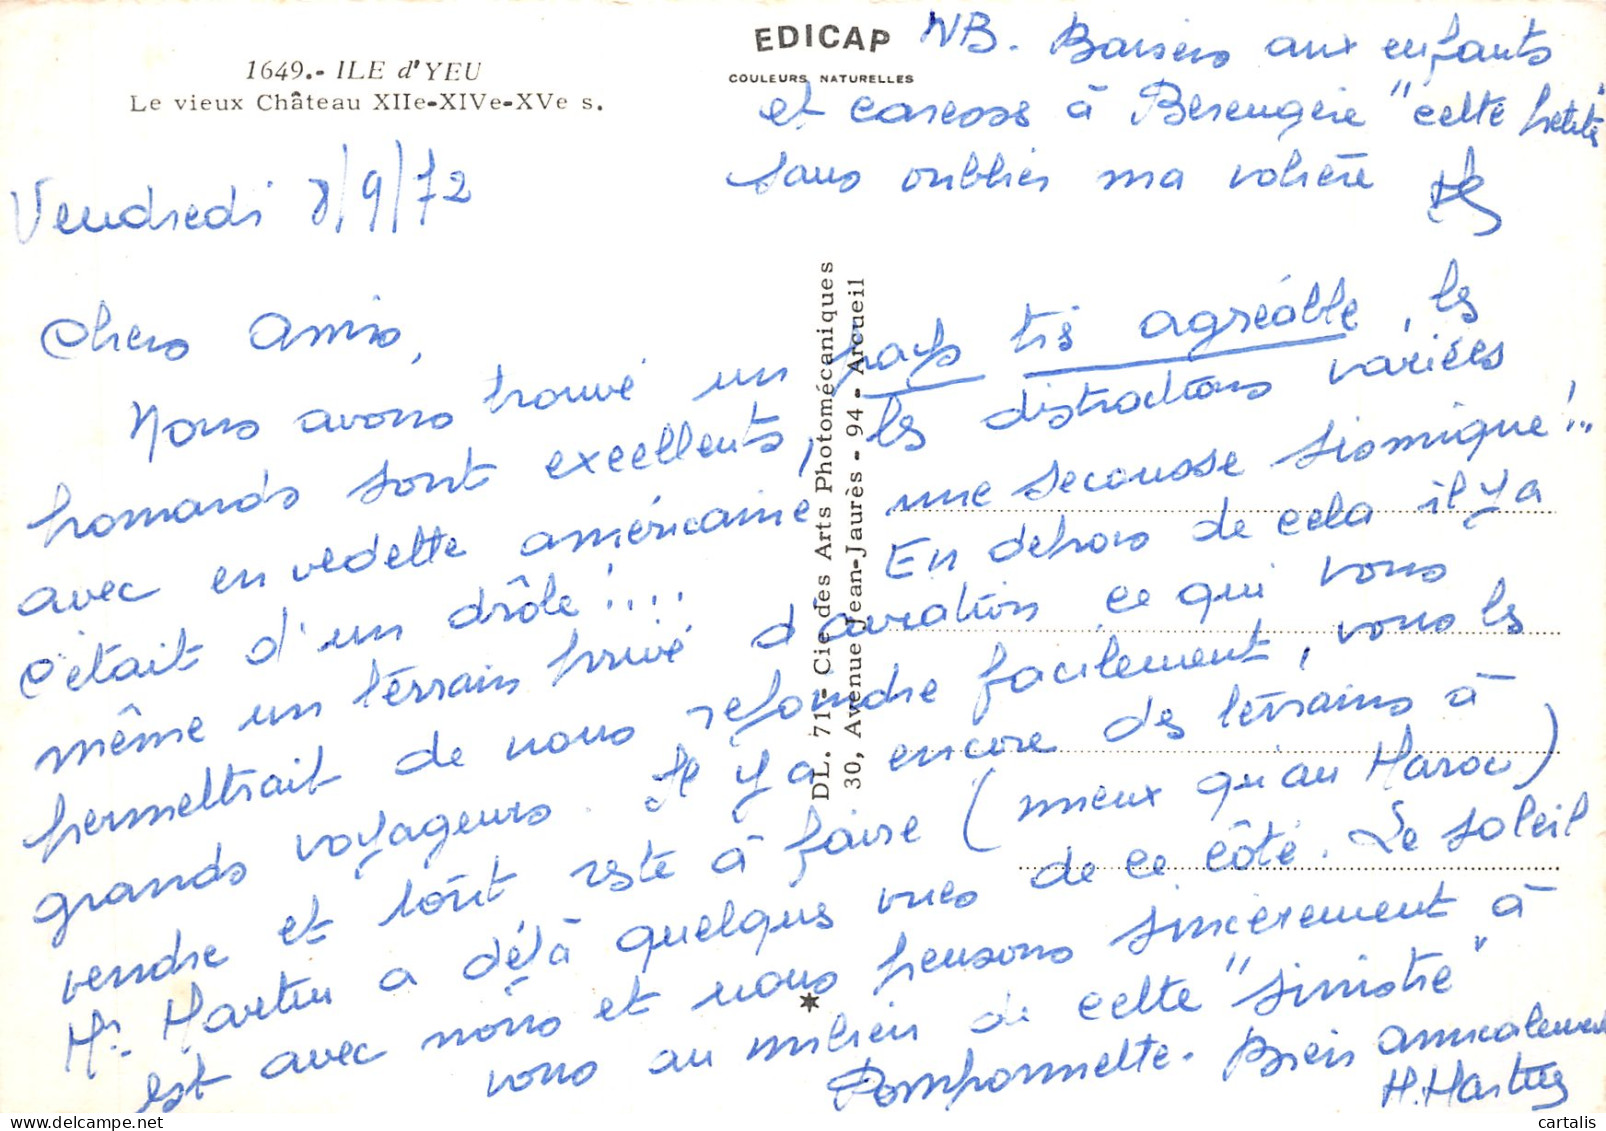 1649.- ILE d'YEU
Le vieux Château XIIe-XIVe-XVe s.
EDICAP
COULEURS NATURELLES
NB. Baisers aux enfants
et caresses à Bérengère "cette petite"
sans oublier ma volière
Vendredi 8/9/72
Chers Amis,
Nous avons trouvé un pays très agréable, les
homards sont excellents, les distractions variées
avec en vedette américaine une secousse sismique!..
c'était d'un drôle!.... En dehors de cela il y a
même un terrain privé d'aviation ce qui vous
permettrait de nous rejoindre facilement, vous les
grands voyageurs. Il y a encore des terrains à
vendre et tout reste à faire (mieux qu'au Maroc)
Mr. Martin a déjà quelques vues de ce côté. Le soleil
est avec nous et nous pensons sincèrement à
vous au milieu de cette "sinistre"
Pomponnette. Bien amicalement
H. Martin
DL. 71 - Cie des Arts Photomécaniques
30, Avenue Jean-Jaurès - 94 - Arcueil
cartalis.com